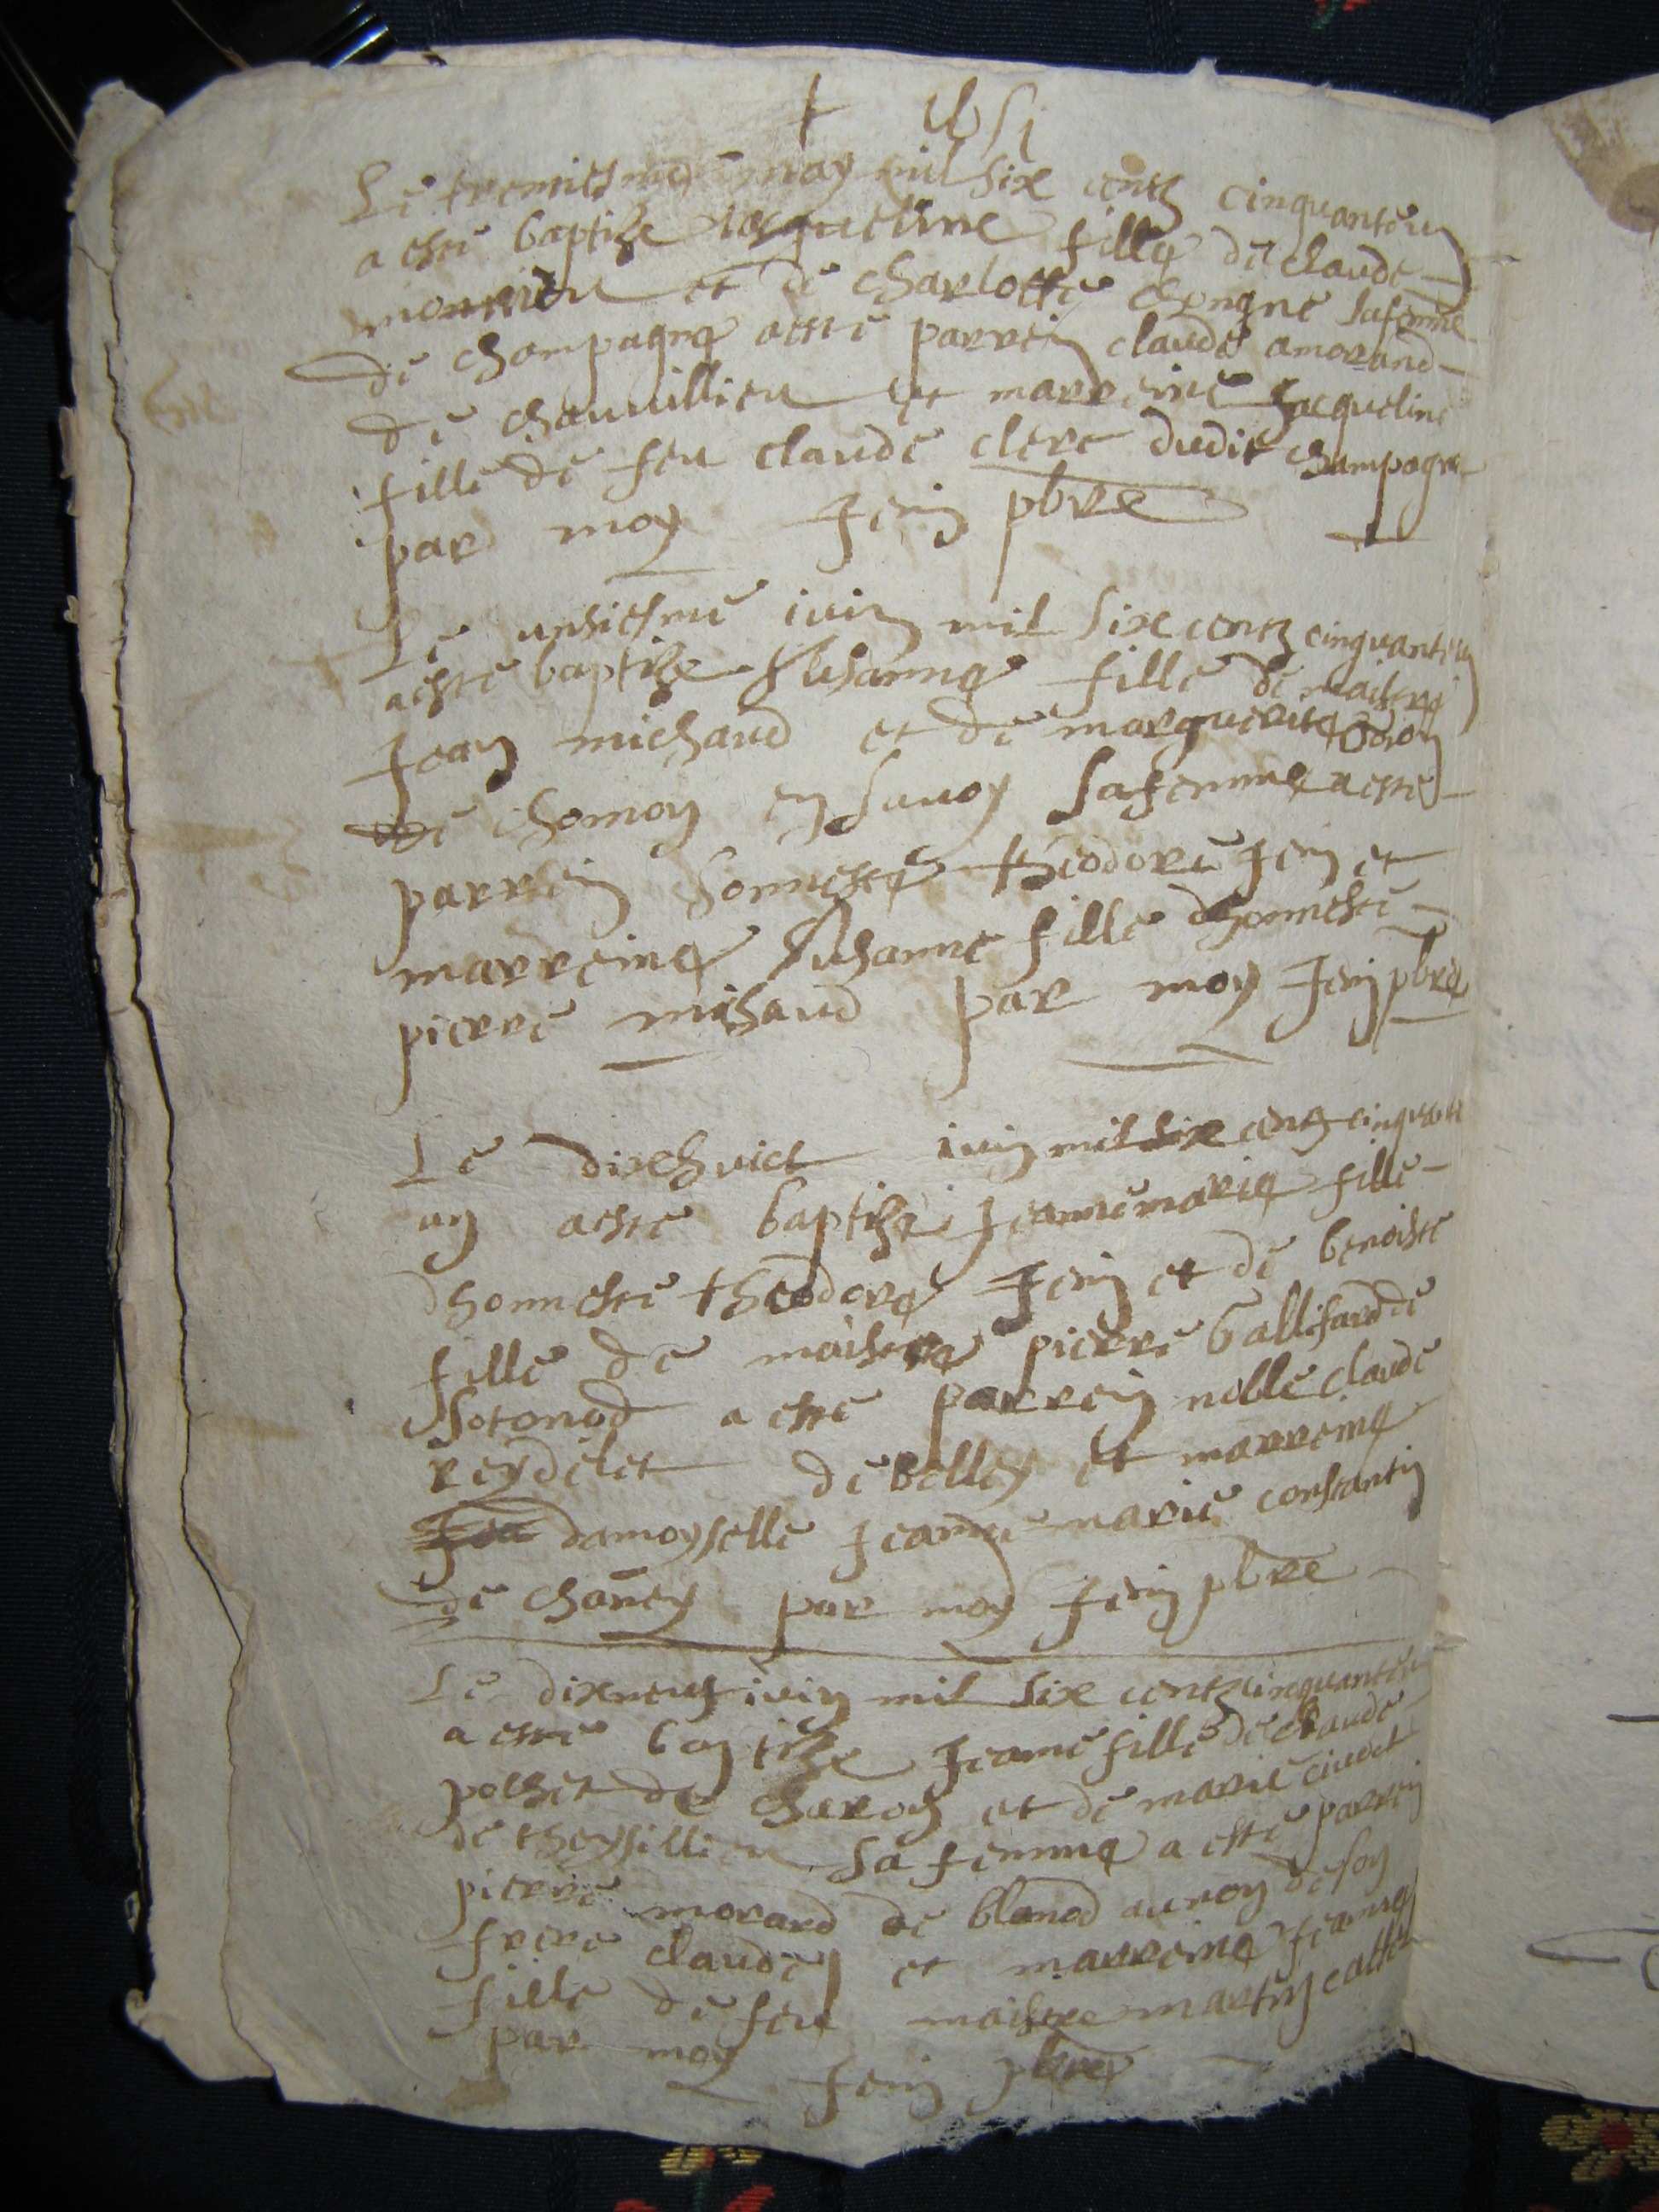 +
Le trentiesme may mil six centz cinquanteun
a este baptize Jacqueline fille de claude
monnier et de charlotte chongne sa femme
de champagne a este parrein claude amorand
de chavuillieu et marreine Jacqueline
fille de feu claude clerc dudit champagne
par moy Jenin pbre
Le unsiesme iuin mil six centz cinquanteun
a este baptize Susanne fille de maistre
Jean michaud et de marguerite
de chomon en savoy sa femme a este
parrein honneste theodore Jenin et
marreine Susanne fille dhonneste
pierre mihaud par moy Jenin pbre
Le dixhuict iuin mil six centz cinquante
un a este baptize Jeanne marie fille
dhonneste theodore Jenin et de benoiste
fille de maistre pierre ballifard de
Sotonod a este parrein noble claude
reydelet de belley et marreine
damoyselle Jeanne marie constantin
de chaney par moy Jenin pbre
Le dixneuf iuin mil six centz cinquanteun
a este baptize Jeanne fille de claude
pochet de charon et de marie
de theysillieu sa femme a este parrein
pierre morard de blanod au nom de son
frere claude et marreine Jeanne
fille de feu maistre martin
par moy Jenin pbre